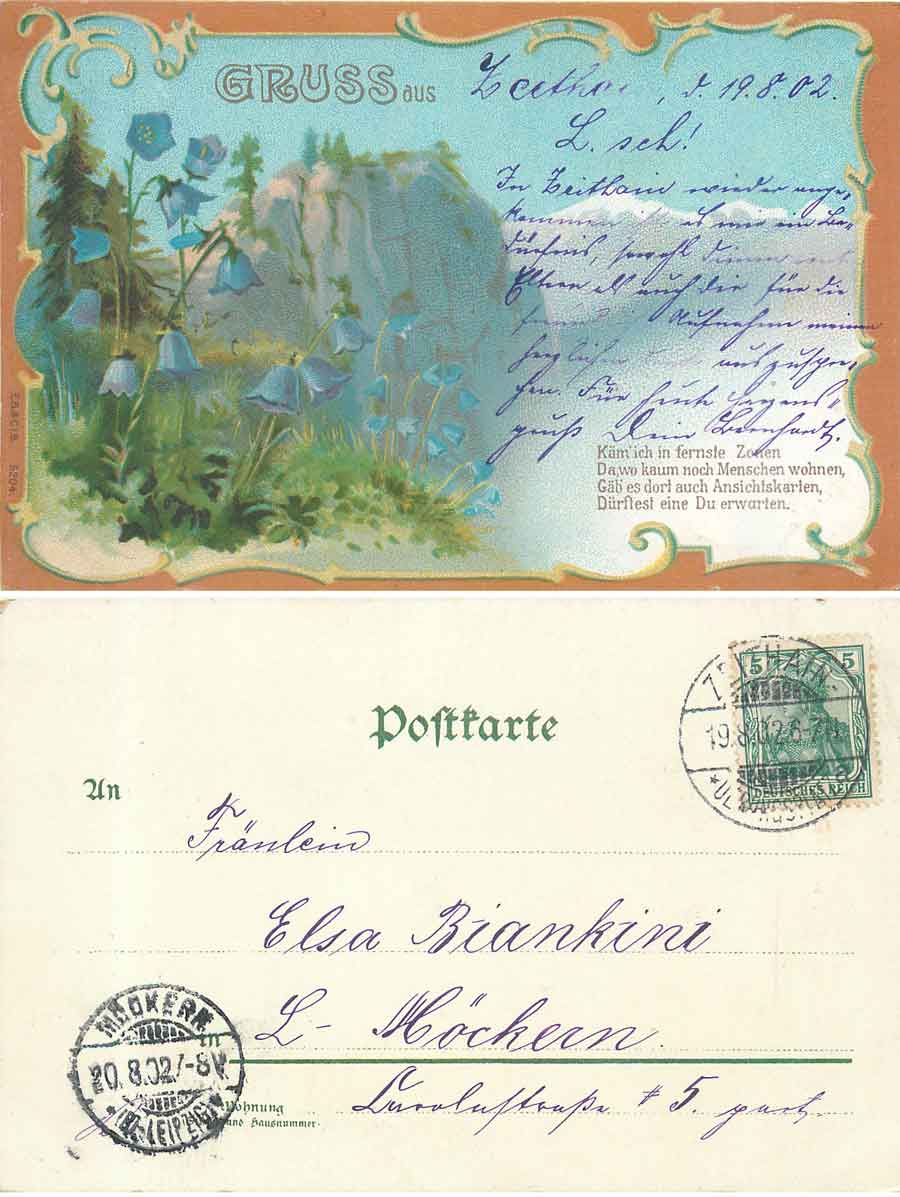 GRUSS aus Zeithain, d. 19.8.02.
L. sch!
In Zeithain wieder ange-
kommen ist es mir ein Be-
dürfnis, sowohl Deinen
Eltern als auch dir für die
Aufnahme meinen
herzlichen auszuspre-
chen. Für heute
gruß Dein Bernhardt.
Käm' ich in fernste Zonen
Da, wo kaum noch Menschen wohnen,
Gäb es dort auch Ansichtskarten,
Dürftest eine Du erwarten.
5204.
Postkarte
ZEITHAIN
19.8.02.6-7N.
5 5
DEUTSCHES REICH
An
Fräulein
Elsa Biankini
L- Möckern
in
MÖCKERN
20.8.02.7-8V.
LEIPZIG
Wohnung
und Hausnummer.
# 5. part.